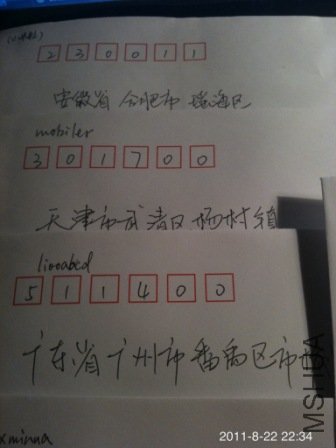 230011
安徽省 合肥市 瑶海区
mobiler
301700
天津市武清区杨村镇
liooabcd
511400
广东省广州市番禺区市
xminna
2011-8-22 22:34
MSHUA